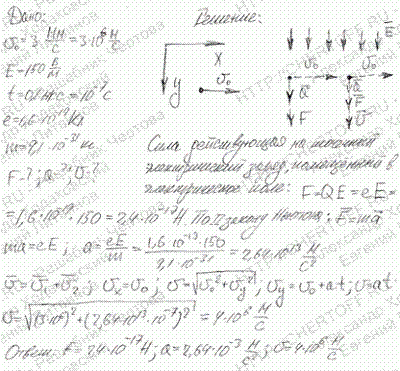 Дано:
Решение:
υ₀ = 3 Мм/с = 3·10⁶ м/с
E = 150 В/м
t = 0,1 мкс = 10⁻⁷ с
e = 1,6·10⁻¹⁹ Кл
m = 9,1·10⁻³¹ кг
F-?; a-? υ-?
X
y
υ₀
E
υ₀
υ₀
a
F
a
F
υ
Сила действующая на точечный
электрический заряд, помещённый в
электрическое поле: F = QE = eE =
= 1,6·10⁻¹⁹·150 = 2,4·10⁻¹⁷ Н По II закону Ньютона: F = ma
ma = eE; a = eE/m = 1,6·10⁻¹⁹·150/9,1·10⁻³¹ = 2,64·10¹³ м/с²
υ = υ₁ + υ₂; υₓ = υ₀; υ = √υ₀² + υy²; υy = υ₀ + at; υ = at
υ = √(3·10⁶)² + (2,64·10¹³·10⁻⁷)² = 4·10⁶ м/с
Ответ: F = 2,4·10⁻¹⁷ Н; a = 2,64·10⁻³ м/с²; υ = 4·10⁶ м/с